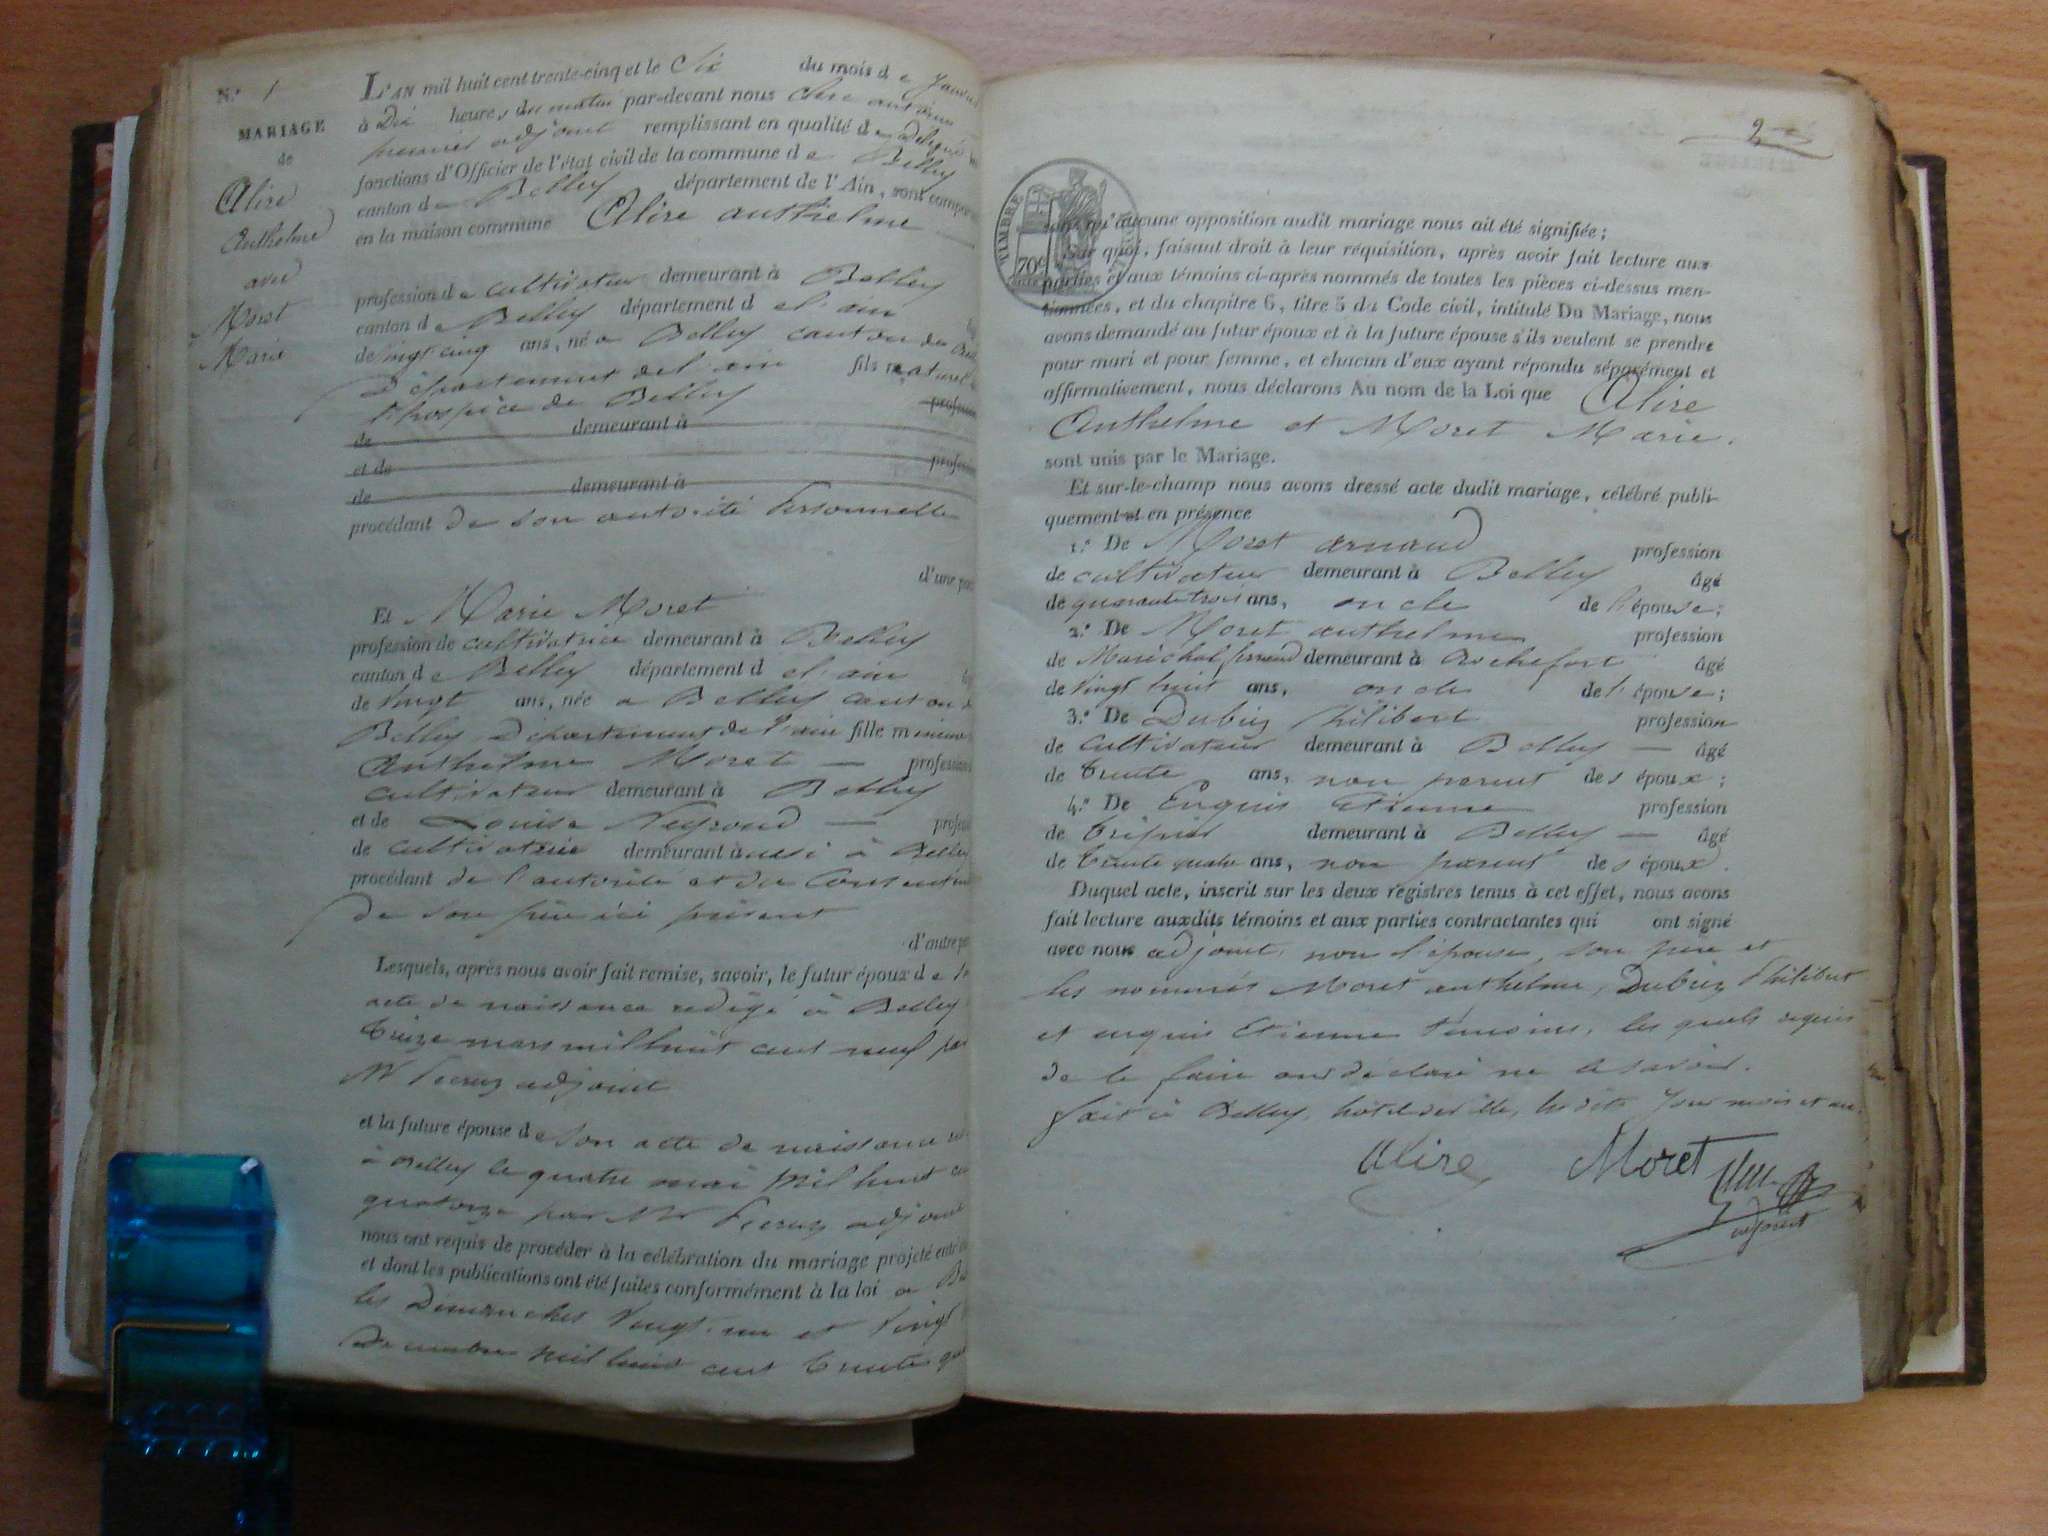 N.° 1
MARIAGE
de
Alire
Anthelme
avec
Moret
Marie
L'AN mil huit cent trente-cinq et le Six du mois de Janvier
à Dix heures du matin par-devant nous
premier adjoint remplissant en qualité de
fonctions d'Officier de l'état civil de la commune de Belley
canton de Belley département de l'Ain, sont compar
en la maison commune Alire anthelme
profession de cultivateur demeurant à Belley
canton de Belley département de l'ain
de vingt cinq ans, né a Belley canton de
département de l'ain fils naturel
l'hospice de Belley profession
de demeurant à
et de profession
de demeurant à
procédant de son autorité personnelle
d'une part
Et Marie Moret
profession de cultivatrice demeurant à Belley
canton de Belley département de l'ain
de vingt ans, née a Belley canton de
Belley, Département de l'ain fille mineure
Anthelme Moret — profession
cultivateur demeurant à Belley
et de Louise Neyroud — profession
de cultivatrice demeurant aussi à Belley
procédant de l'autorité et du Consentement
de son père ici présent
d'autre part
Lesquels, après nous avoir fait remise, savoir, le futur époux de
acte de naissance redigé à Belley
treize mars mil huit cent neuf par
Mr adjoint
et la future épouse de son acte de naissance
à Belley le quatre mai mil huit
quatorze par Mr adjoint
nous ont requis de procéder à la célébration du mariage projeté entr
et dont les publications ont été faites conformément à la loi a
les Dimanches vingt-un et vingt
Décembre mil huit cent trente
2
TIMBRE
70c
sans qu'aucune opposition audit mariage nous ait été signifiée;
Sur quoi, faisant droit à leur réquisition, après avoir fait lecture aux
parties et aux témoins ci-après nommés de toutes les pièces ci-dessus men-
tionnées, et du chapitre 6, titre 5 du Code civil, intitulé Du Mariage, nous
avons demandé au futur époux et à la future épouse s'ils veulent se prendre
pour mari et pour femme, et chacun d'eux ayant répondu séparément et
affirmativement, nous déclarons Au nom de la Loi que Alire
Anthelme et Moret Marie.
sont unis par le Mariage.
Et sur-le-champ nous avons dressé acte dudit mariage, célébré publi-
quement et en présence
1.° De Moret arnaud profession
de cultivateur demeurant à Belley âgé
de quarante trois ans, oncle de l'épouse;
2.° De Moret anthelme profession
de Maréchal ferrand demeurant à Rochefort âgé
de vingt huit ans, oncle de l'épouse;
3.° De Dubuy Philibert profession
de Cultivateur demeurant à Belley — âgé
de trente ans, non parent des époux;
4.° De Enquis Etienne profession
de tripier demeurant à Belley — âgé
de trente quatre ans, non parent des époux.
Duquel acte, inscrit sur les deux registres tenus à cet effet, nous avons
fait lecture auxdits témoins et aux parties contractantes qui ont signé
avec nous adjoint, non l'épouse, son père et
les nommés Moret anthelme, Dubuy Philibert
et enquis Etienne témoins, les quels requis
de le faire ont déclaré ne le savoir.
fait à Belley, hôtel de ville, les dits jour mois et an.
Alire Moret
adjoint